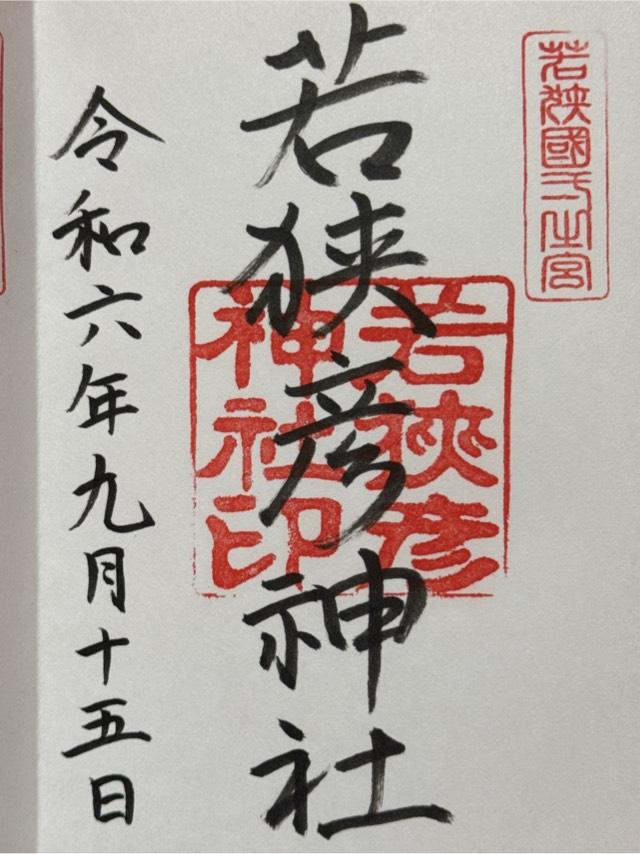 若狭國一之宮
若狭彦神社
若狭彦
神社印
令和六年九月十五日